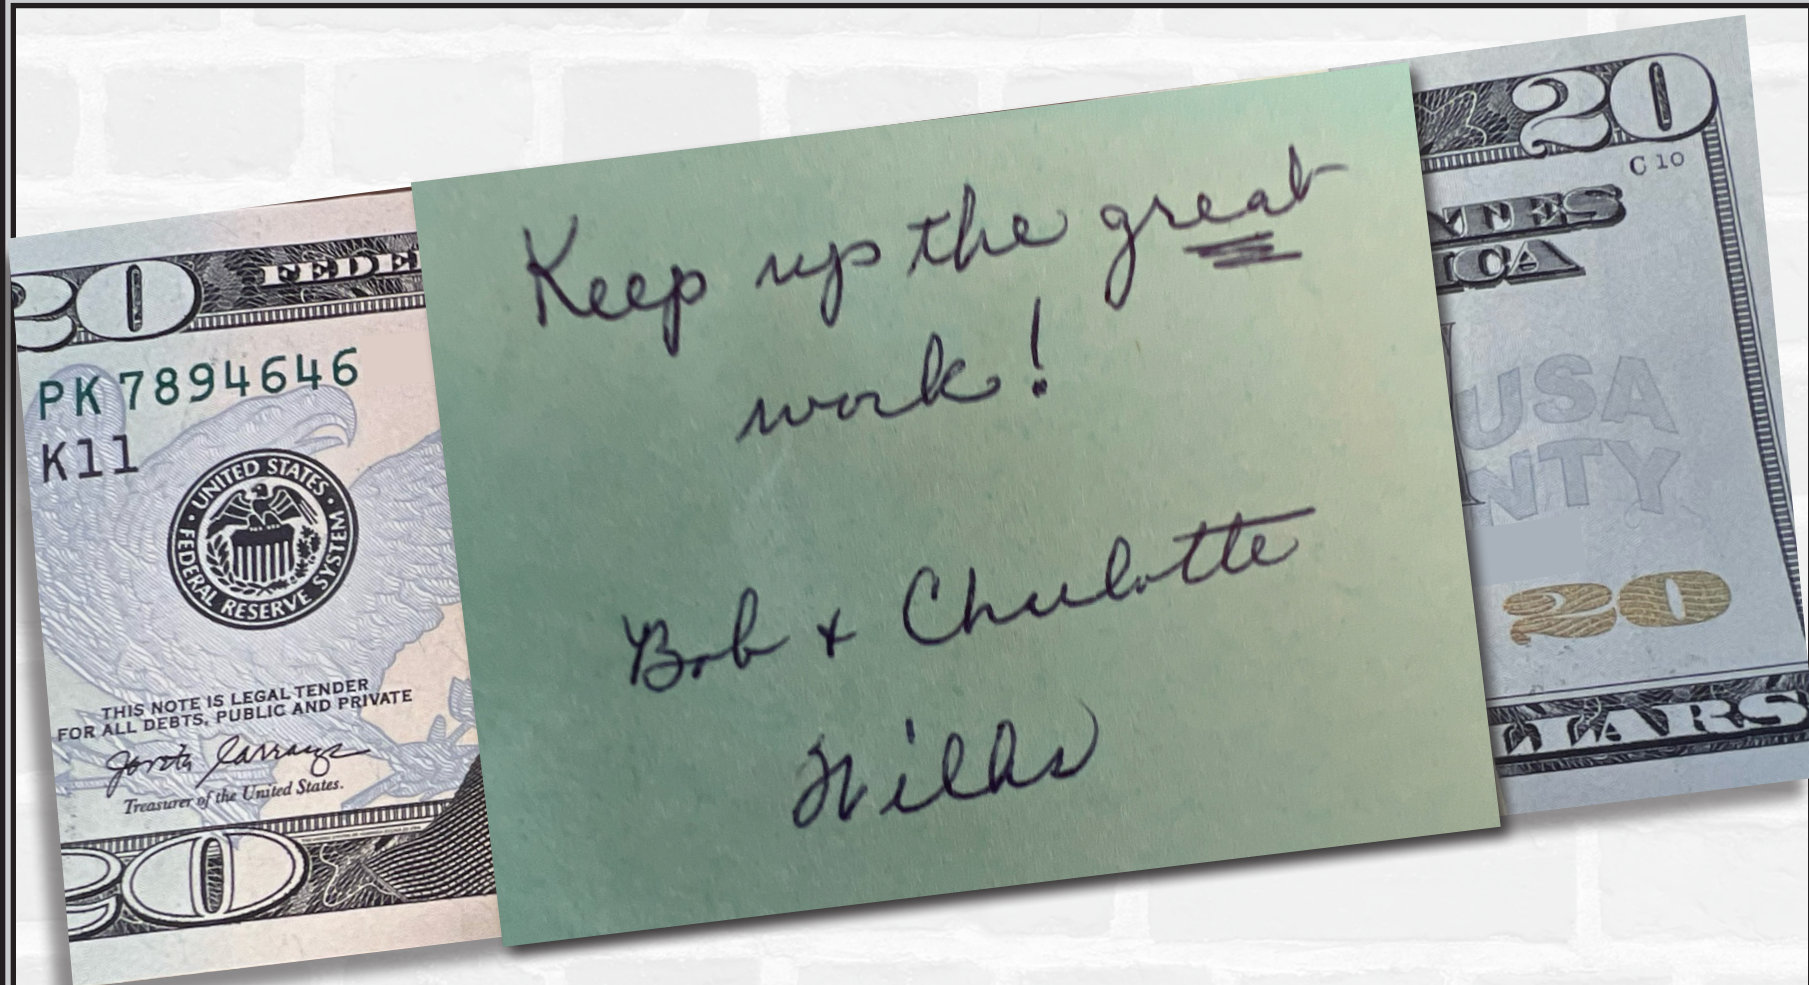 20 FEDE
PK 7894646
K11
UNITED STATES
FEDERAL RESERVE SYSTEM
THIS NOTE IS LEGAL TENDER
FOR ALL DEBTS, PUBLIC AND PRIVATE
Treasurer of the United States.
20
Keep up the great
work!
Bob & Charlotte
20
C 10
TES
ICA
USA
NTY
20
LARS